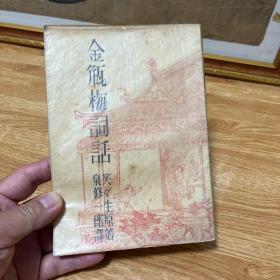 金瓶梅詞話
笑々生原著
泉修一郎譯